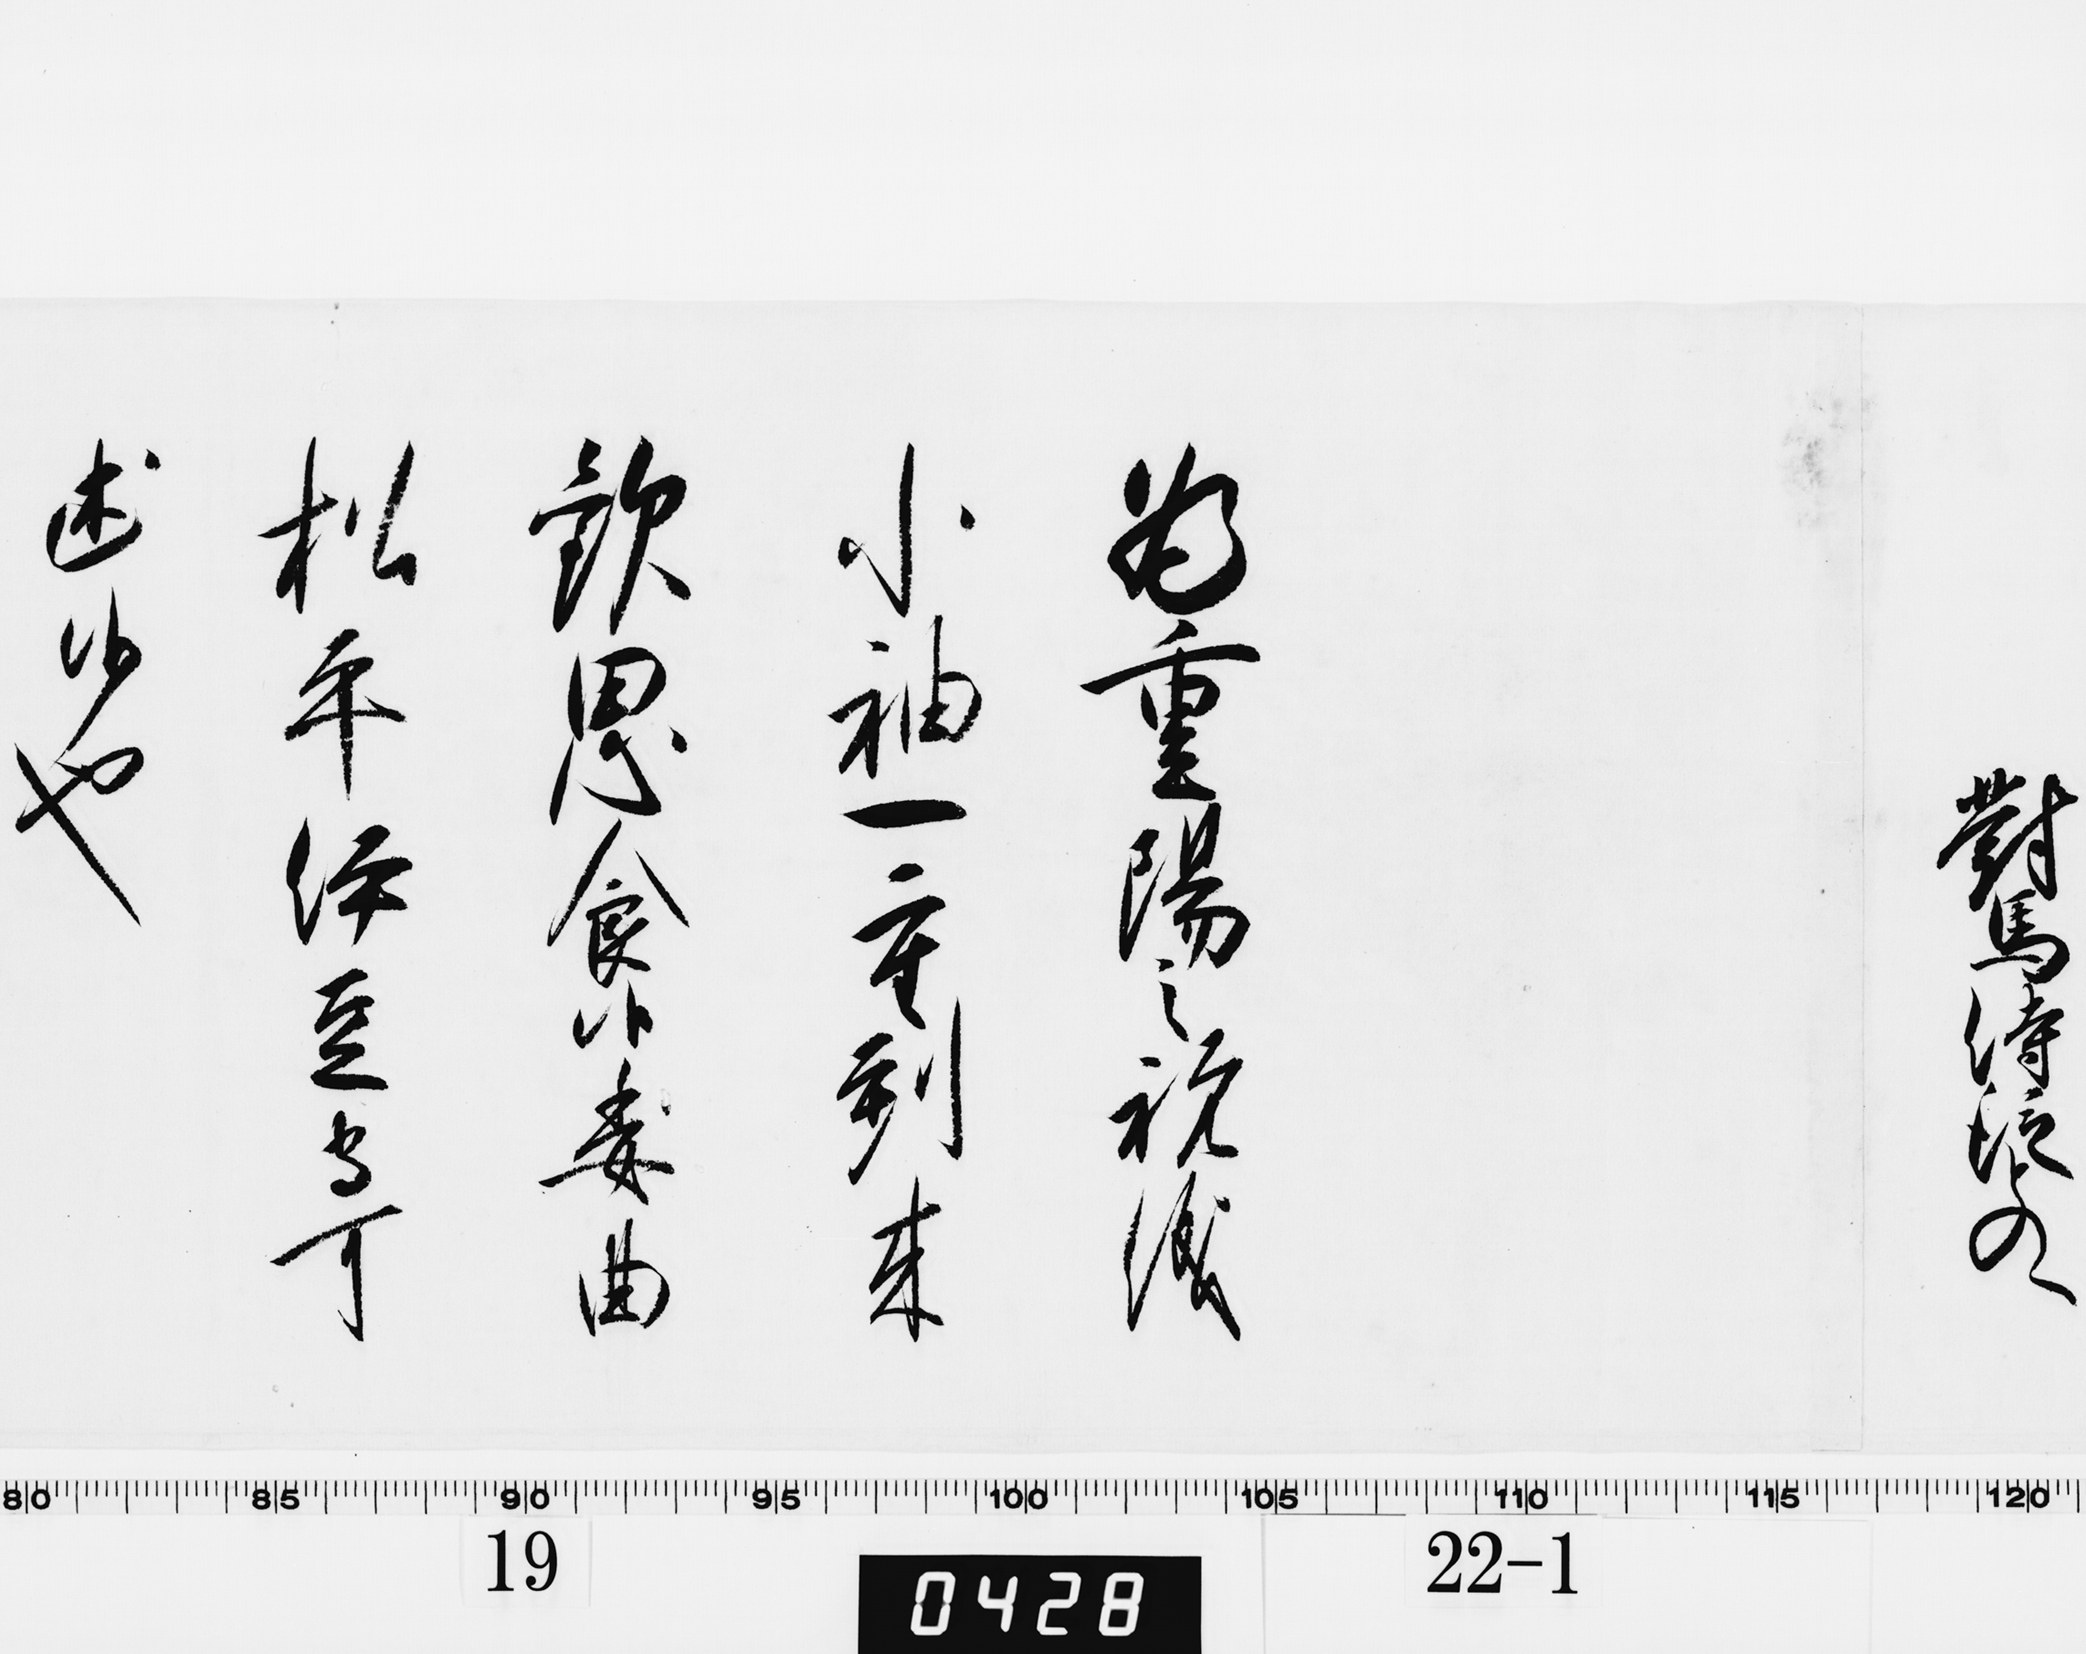 對馬侍従とのへ
為重陽之祝儀
小袖一重到来
歓思食候委曲
松平伊豆守可
述候也
80 85 90 95 100 105 110 115 120
19
0428
22-1